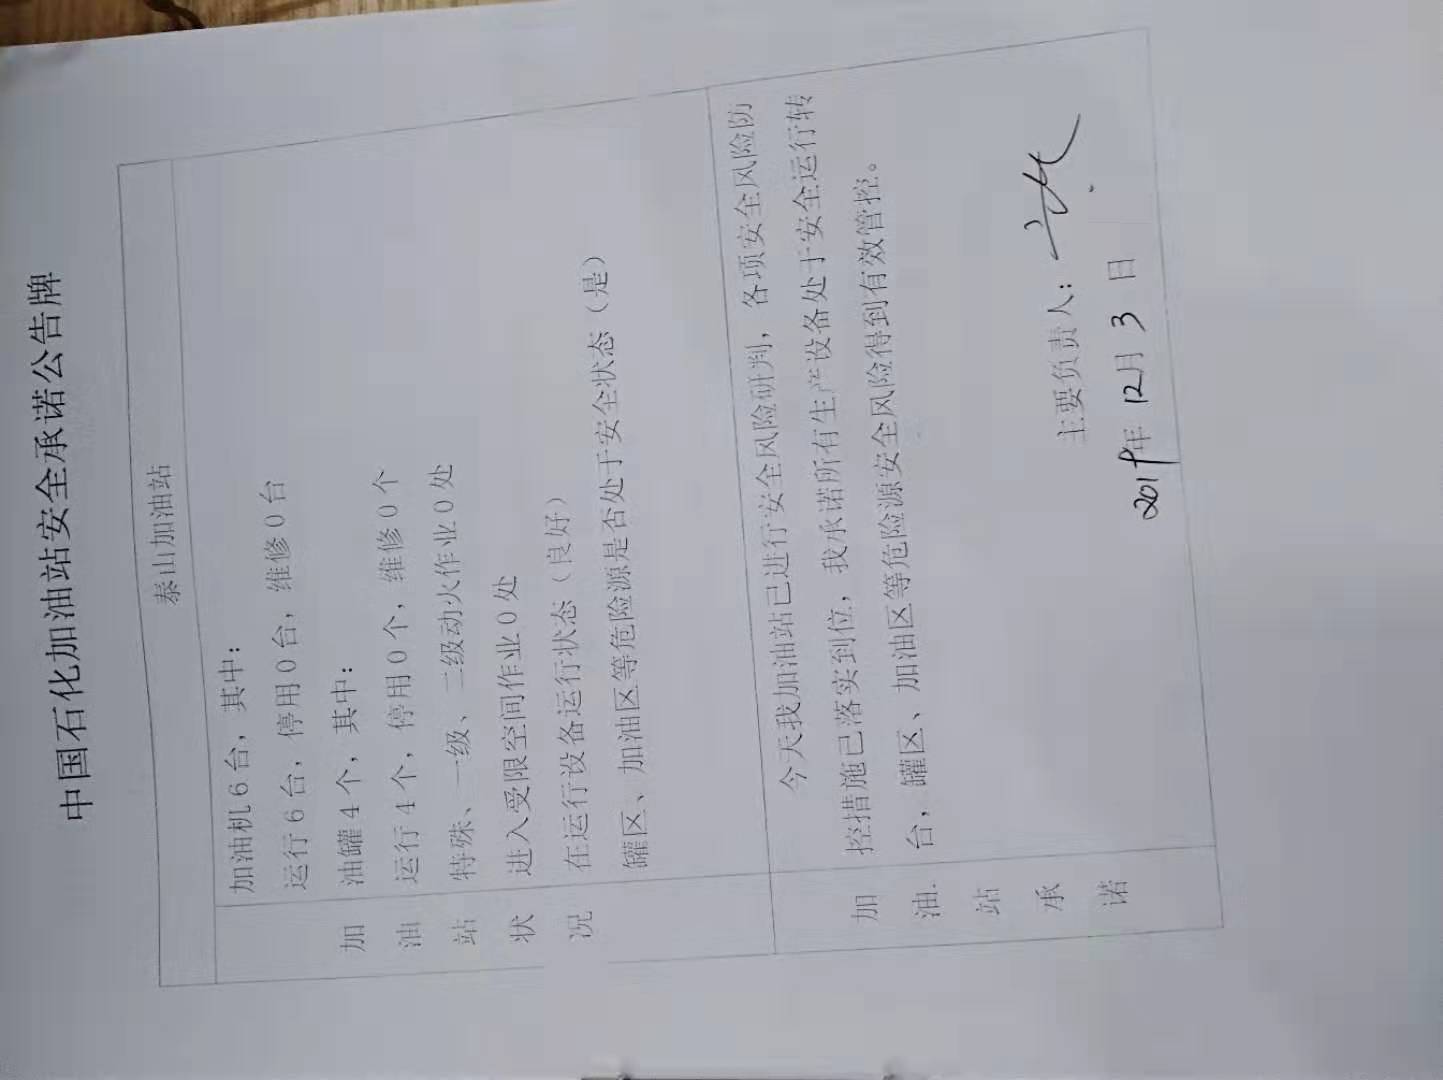 中国石化加油站安全承诺公告牌
泰山加油站
加油站状况
加油机6台，其中：
运行6台，停用0台，维修0台
油罐4个，其中：
运行4个，停用0个，维修0个
特殊、一级、二级动火作业0处
进入受限空间作业0处
在运行设备运行状态（良好）
罐区、加油区等危险源是否处于安全状态（是）
加油站承诺
今天我加油站已进行安全风险研判，各项安全风险防
控措施已落实到位，我承诺所有生产设备处于安全运行转
台，罐区、加油区等危险源安全风险得到有效管控。
主要负责人：
2019年12月3日